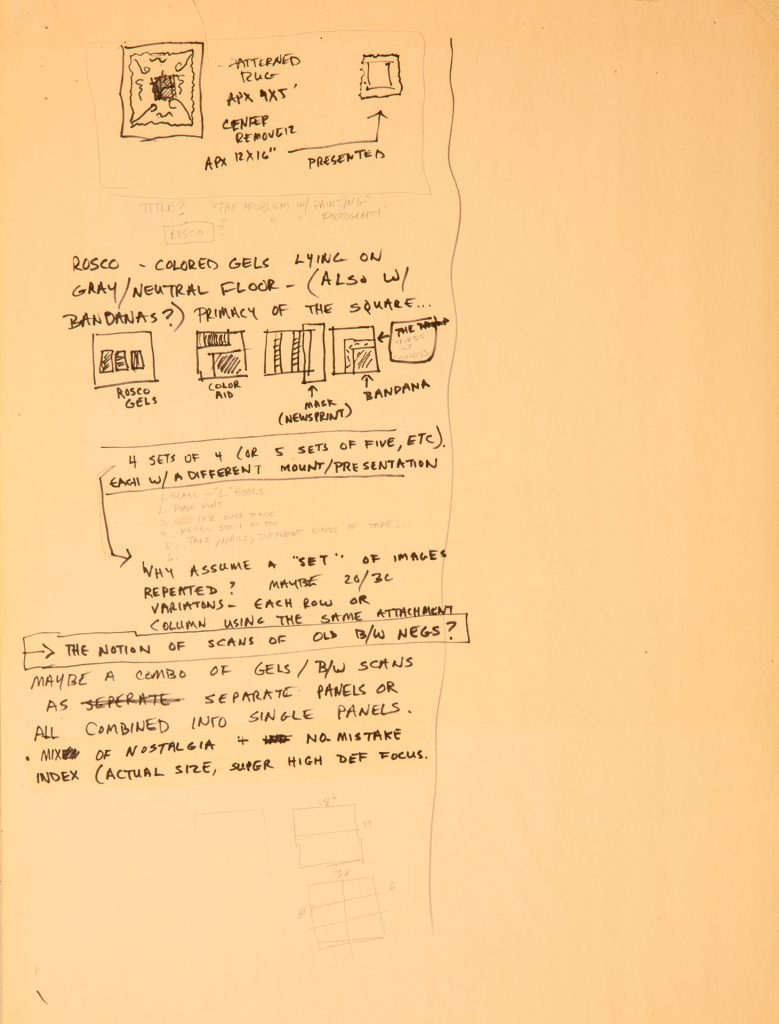 PATTERNED
RUG
APX 4X5'
CENTER
REMOVE
APX 12X16"
PRESENTED
TITLE? "THE PROBLEM W/ PAINTING"
" " PHOTOGRAPHY"
ROSCO ?
ROSCO - COLORED GELS LYING ON
GRAY/NEUTRAL FLOOR - (ALSO W/
BANDANAS?) PRIMACY OF THE SQUARE...
THE
ROSCO
GELS
COLOR
AID
MASK
(NEWSPRINT)
BANDANA
4 SETS OF 4 (OR 5 SETS OF FIVE, ETC).
EACH W/ A DIFFERENT MOUNT/PRESENTATION
1. GLASS - "L" HOOKS
2. PUSH PINS
3. 1X2 OVER FACE
4. METAL STRIP AT TOP
5. TAPE, NAILS, DIFFERENT KINDS OF TAPE...
6.
WHY ASSUME A "SET" OF IMAGES
REPEATED? MAYBE 20/30
VARIATONS - EACH ROW OR
COLUMN USING THE SAME ATTACHMENT
THE NOTION OF SCANS OF OLD B/W NEGS?
MAYBE A COMBO OF GELS / B/W SCANS
AS SEPERATE SEPARATE PANELS OR
ALL COMBINED INTO SINGLE PANELS.
• MIX OF NOSTALGIA + NO MISTAKE
INDEX (ACTUAL SIZE, SUPER HIGH DEF FOCUS.
18"